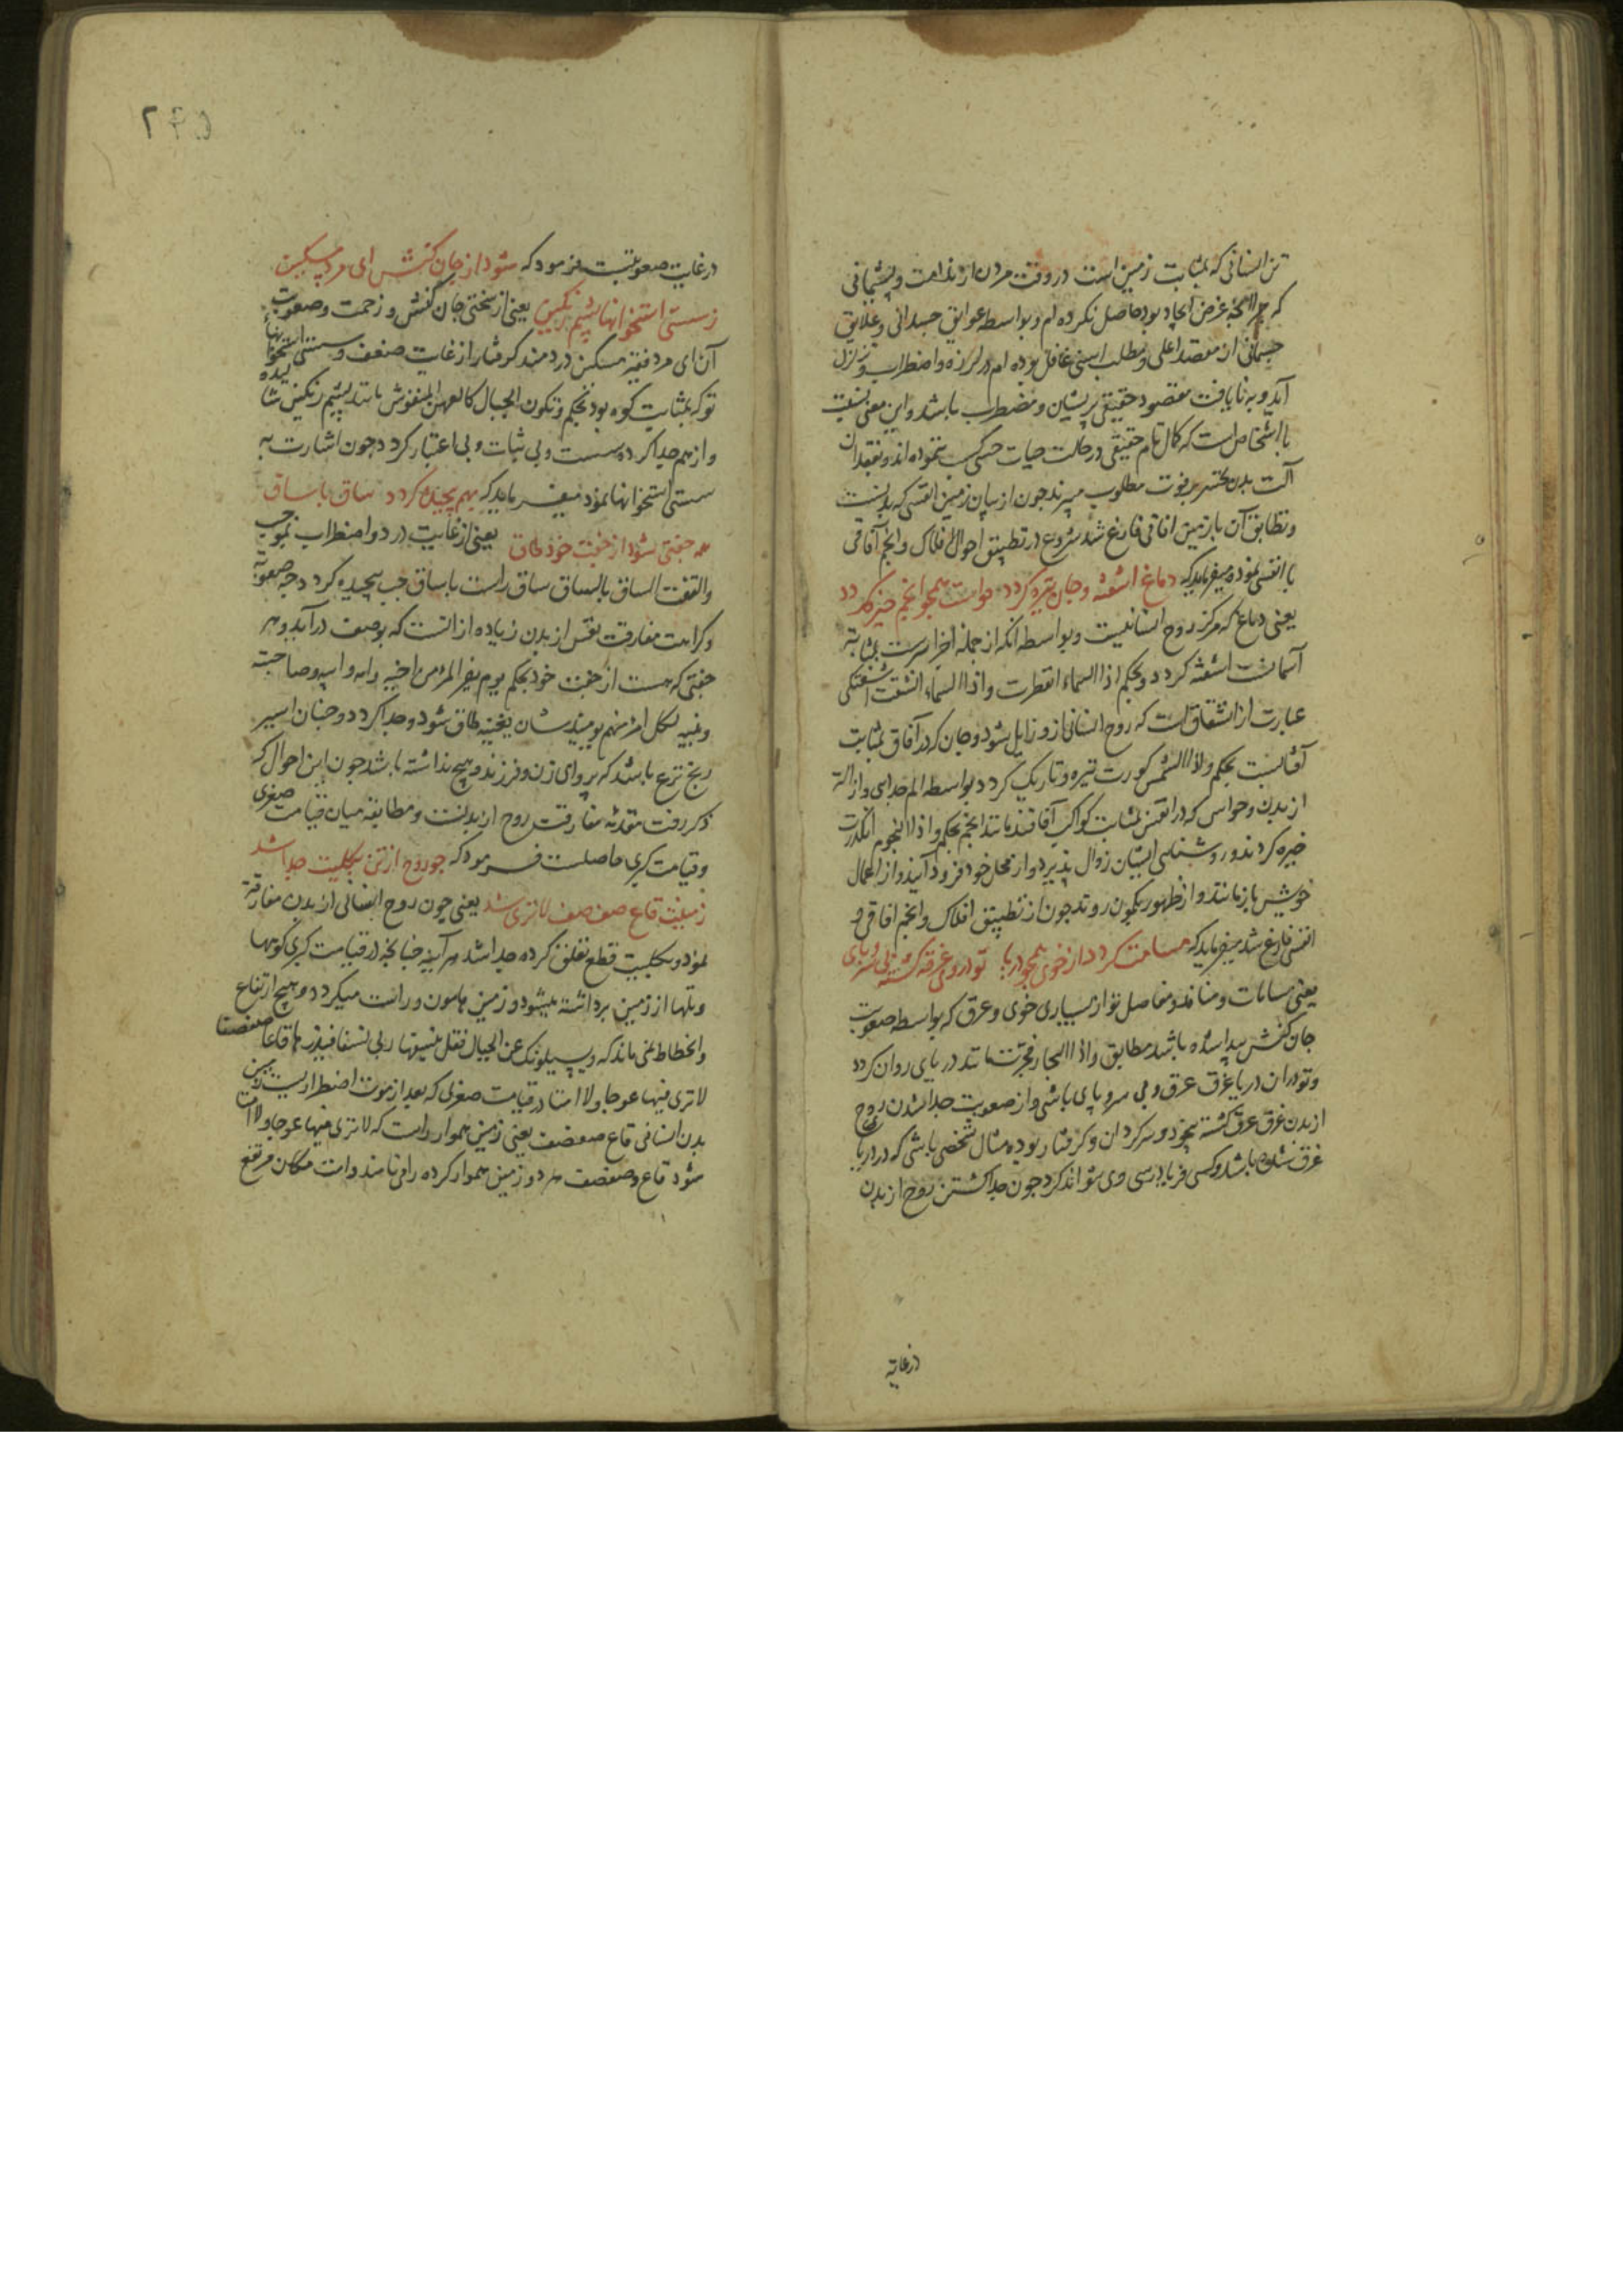 تن انسانی که بمثابت زمین است در وقت مردن از ندامت و پشیمانی
که چرا آنچه غرض ایجاد بود حاصل نکرده ام و بواسطه عوایق جسدانی و علایق
جسمانی از مقصد اعلی و مطلب اسنی غافل بوده ام در لرزه و اضطراب و تزلزل
آید و به نایافت مقصود حقیقی پریشان و مضطرب باشد و این معنی نسبت
با اشخاص است که کمال تام حقیقی در حالت حیات حسی کسب ننموده اند و بفقدان
آلت بدن تحسر بر فوت مطلوب میبرند جون از بیان زمین انفسی که بدنست
و تطابق آن بازمین افاقی فارغ شد شروع در تطبیق احوال افلاک و انجم آفاقی
با انفسی نموده میفرماید که دماغ اشفته و جان تیره کردد حواست همجو انجم خیره کردد
یعنی دماغ که مرکز روح انسانیست و بواسطه انکه از جمله اجزا سرست بمثابه
آسمانست اشفته کردد و بحکم اذا السماء انفطرت و اذا السماء انشقت اشفتکی
عبارت از انشقاق است که روح انسانی ازو زایل شود و جان که در آفاق بمثابت
آفتابست بحکم و اذا الشمس کورت تیره و تاریک کردد بواسطه الم جدایی و ازاله
از بدن و حواس که در انفس بمثابت کواکب آفاقند مانند انجم بحکم و اذا النجوم انکدرت
خیره کردند و روشنایی ایشان زوال پذیرد و از محل خود فرود آیند و از اعمال
خویش باز مانند و از ظهور بکمون روند جون از تطبیق افلاک و انجم افاقی و
انفسی فارغ شد میفرماید که مسامت کردد از خوی همجو دریا تو در وی غرقه کشته بی سر و پای
یعنی مسامات و منافذ و مفاصل تو از بسیاری خوی و عرق که بواسطه صعوبت
جان کنش پیدا شده باشد مطابق و اذا البحار فجرت مانند دریای روان کردد
و تو در ان دریا غرق عرق و بی سر و پای باشی و از صعوبت جدا شدن روح
از بدن غرق عرق کشته بیخود و سرکردان و کرفتار بوده مثال شخصی باشی که در دریا
غرق شده باشد و کسی فریاد رسی وی نتواند کرد جون جدا کشتن روح از بدن
درغایة
درغایت صعوبتست فرمود که شود از جان کنش ای مرد مسکین
ز سستی استخوانها پشم رنکین یعنی از سختی جان کنش و زحمت و صعوبت
آن ای مرد فقیر مسکین دردمند کرفتار از غایت ضعف و سستی استخوانهاء
تو که بمثابت کوه بود بحکم و تکون الجبال کالعهن المنفوش مانند پشیم رنکین شا
یده
و از هم جدا کرده سست و بی ثبات و بی اعتبار کردد جون اشارت به
سستی استخوانها نمود میفرماید که بهم پیجیده کردد ساق باساق
همه جفتی شود از جفت خود طاق یعنی از غایت درد و اضطراب بموجب
والتفت الساق بالساق ساق راست باساق جب پیجیده کردد جه صعوبة
و کراهت مفارقت نفس از بدن زیاده از انست که بوصف درآید و هر
جفتی که هست از جفت خود بحکم یوم یفر المرء من اخیه و امه و ابیه و صاحبته
و بنیه لکل امرئ منهم یومئذ شان یغنیه طاق شود و جدا کردد و جنان اسیر
رنج نزع باشد که پروای زن و فرزند و هیچ نداشته باشد جون این احوال که
ذکر رفت مقدمه مفارقت روح از بدنست و مطابقه میان قیامت صغری
و قیامت کبری حاصلست فرمود که جو روح از تن بکلیت جدا شد
زمینت قاع صفصف لاتری شد یعنی چون روح انسانی از بدن مفارقت
نمود و بکلیت قطع تعلق کرده جدا شد هر آینه جنانجه در قیامت کبری کوهها
و تلها از زمین برداشته میشود و زمین هامون و راست میکردد و هیچ ارتفاع
و انحطاط نمی ماند که و یسیلونک عن الجبال فقل ینسفها ربی نسفا فیذرها قاعا صفصفا
لاتری فیها عوجا ولا امتا در قیامت صغری که بعد از موت اضطراریست زمین
بدن انسانی قاع صفصف یعنی زمین هموار راست که لا تری فیها عوجا ولا امتا
شود قاع و صفصف هر دو زمین هموار کرده را می نامند و امت مکان مرتفع